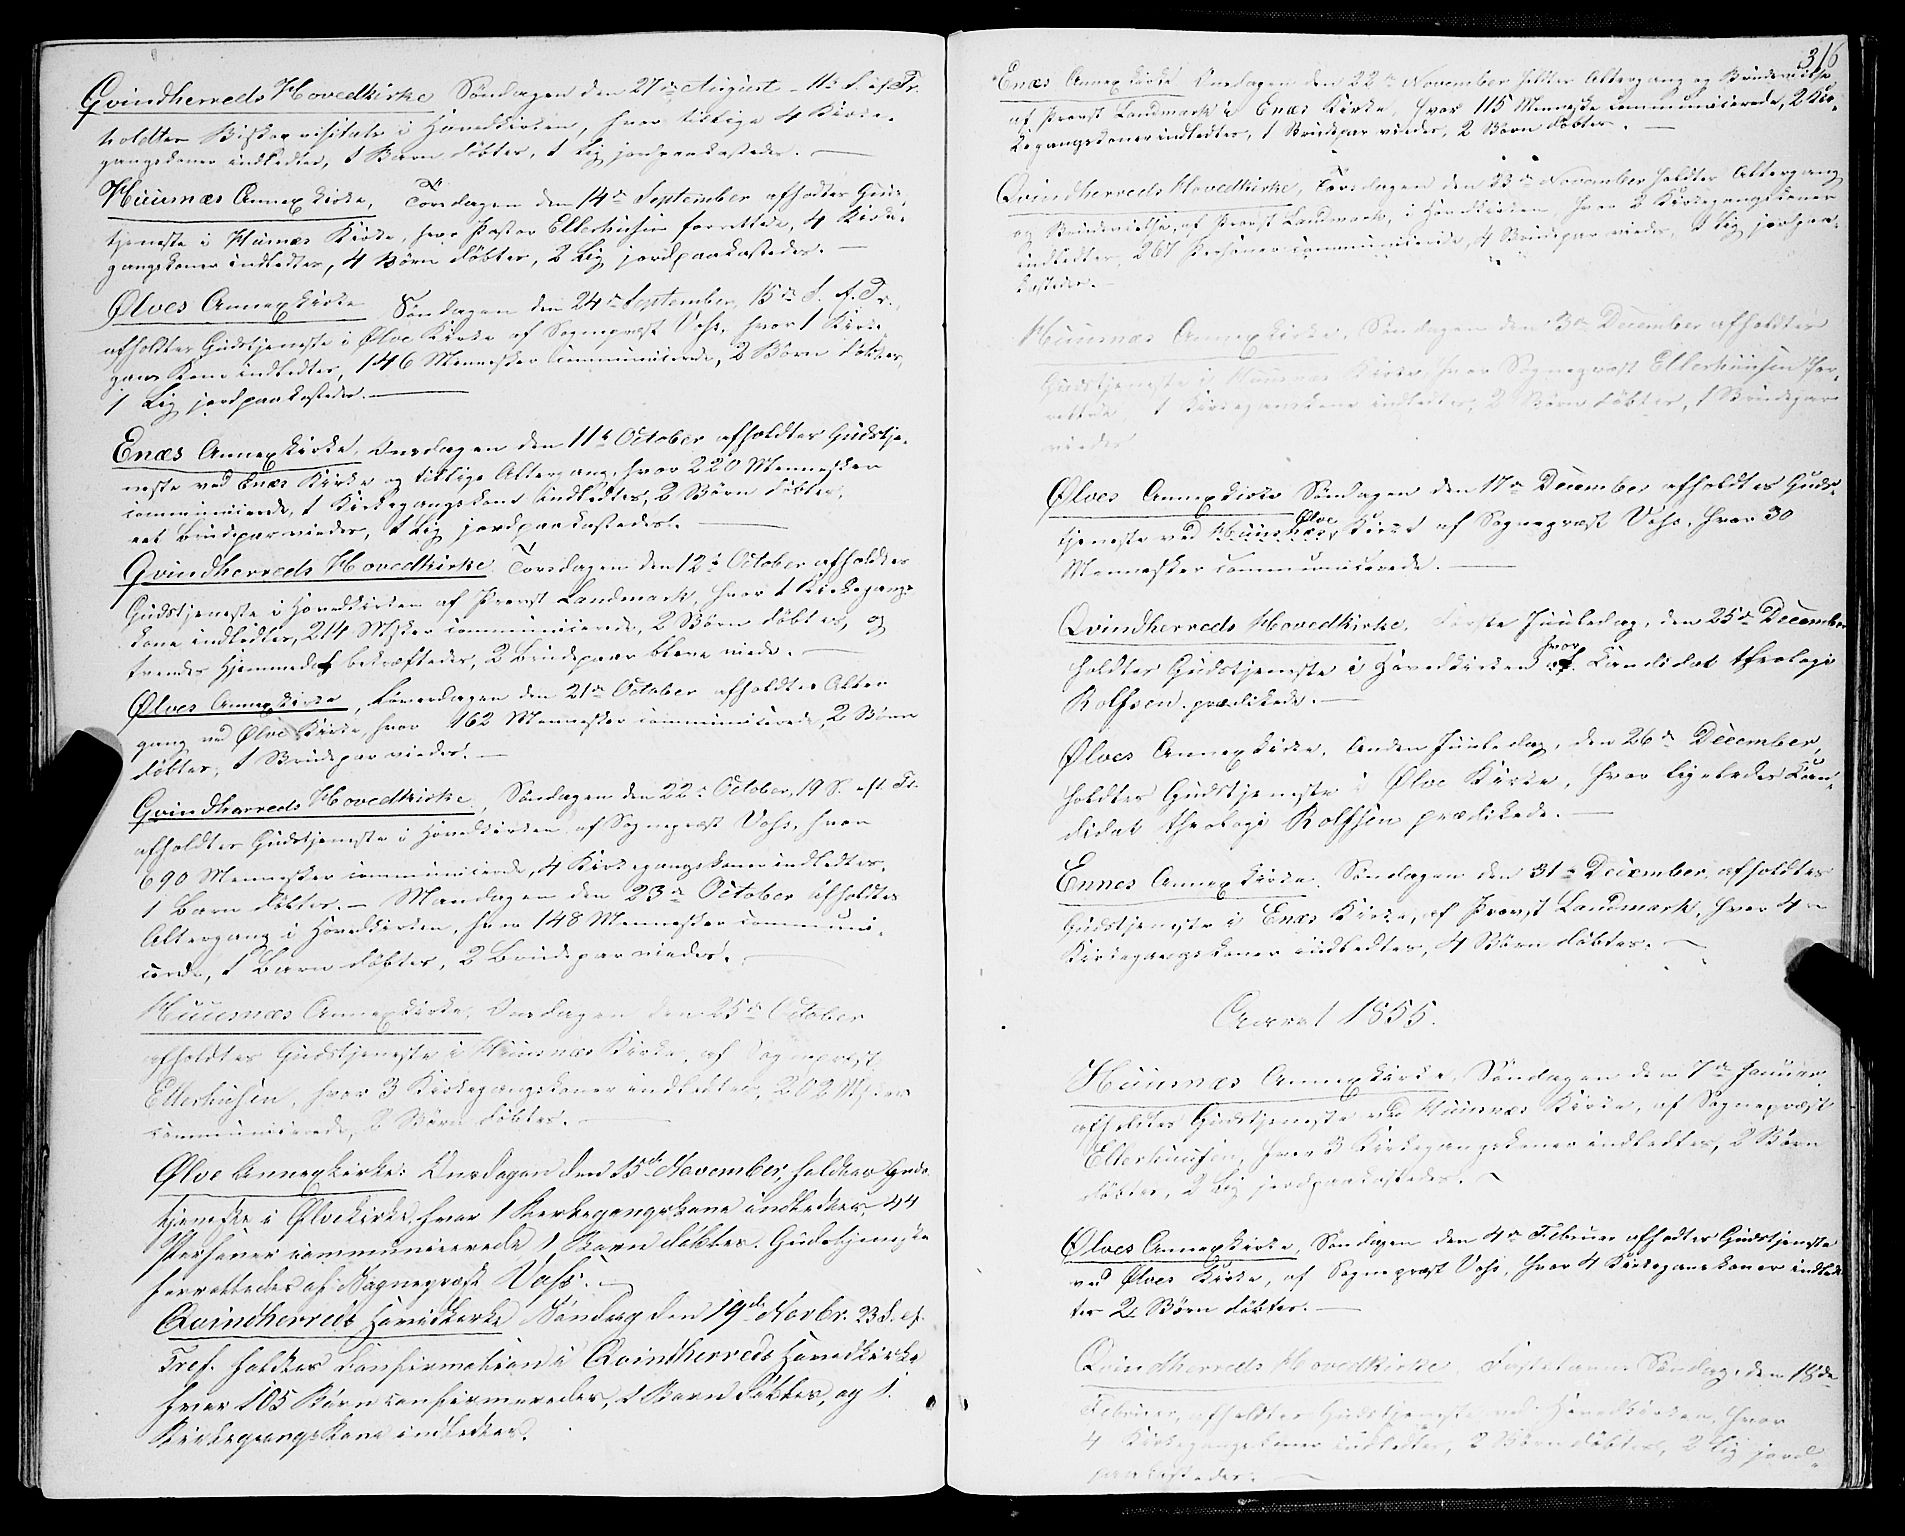 Qvindherreds Hovedkirke Søndagen den 27de August 11te S. ef Tr.
holdtes Bispevisitats i Hovedkirken, hvor tillige 4 Kirke-
gangskoner indledtes, 1 Barn døbtes, 1 Lig jordpaakastedes. —
Huusnæs Annexkirke, Torsdagen den 14de September afholdtes Guds-
tjeneste i Husnæs Kirke, hvor Pastor Ellerhusen forrettede, 4 Kirke-
gangskoner indledtes, 4 Børn døbtes, 2 Lig jordpaakastedes. —
Ølves Annexkirke Søndagen den 24de September, 15de S. e. Tr.,
afholdtes Gudstjeneste i Ølve Kirke af Sognepræst Vahs, hvor 1 Kirke-
gans Kone indledtes, 146 Mennesker communicerede, 2 Børn døbtes,
1 Lig jordpaakastedes. —
Enæs Annexkirke, Onsdagen den 11te October afholdtes Gudstje-
neste ved Enæs Kirke og tillige Altergang, hvor 220 Mennesker
communicerede, 1 Kirkegangskone indledtes, 2 Børn døbtes,
eet Brudepar viedes, 1 Lig jordpaakastedes. —
Qvindherreds Hovedkirke Torsdagen den 12te October afholdtes
Gudstjeneste i Hovedkirken af Provst Landmark, hvor 1 Kirkegangs-
kone indledtes, 214 Msker communicerede, 2 Børn døbtes, og
trendes Hjemmedåb bekræftedes, 2 Brudepaar bleve viede. —
Ølves Annexkirke, Løverdagen den 21de October afholdtes Alter-
gang ved Ølve Kirke, hvor 162 Mennesker communicerede, 2 Børn
døbtes, 1 Brudepar viedes. —
Qvindherreds Hovedkirke, Søndagen den 22de October, 19 S. eft Tr.
afholdtes Gudstjeneste i Hovedkirken af Sognepræst Vahs, hvor
690 Mennesker communicerede, 4 Kirkegangskoner indledtes,
1 Barn døbtes. — Mandagen den 23de October afholdtes
Altergang i Hovedkirken, hvor 148 Mennesker communi-
cerede, 1 Barn døbtes, 2 Brudepar viedes. —
Huusnæs Annexkirke, Onsdagen den 25de October
afholdtes Gudstjeneste i Huusnæs Kirke, af Sognepræst
Ellerhusen, hvor 3 Kirkegangskoner indledtes, 202 Msker
communicerede, 2 Børn døbtes. —
Ølve Annexkirke: Onsdagen den 15de November, holdtes Guds-
tjeneste i Ølvekirke, hvor 1 Kirkegangskone indledtes, 44
Personer communicerede 1 Barn døbtes. Gudstjeneste
forrettedes af Sognepræst Vahs. —
Qvindherreds Hovedkirke Søndag den 19de Novbr. 23 S. ef.
Tref. holdtes Confirmation i Qvindherreds Hovedkirke
hvor 105 Børn confirmeredes, 1 Barn døbtes, og 1
Kirkegangskone indledtes.
316
Enæs Annexkirke Onsdagen den 22de November holdtes Altergang og Brudevielse
af Provst Landmark i Enæs Kirke, hvor 115 Menneske communicerede, 2 Kir-
kegangskoner indledtes, 1 Brudepar viedes, 2 Børn døbtes. —
Qvindherreds Hovedkirke, Torsdagen den 23de November holdtes Altergang
og Brudevielse, af Provst Landmark, i Hovedkirken, hvor 2 Kirkegangskoner
indledtes, 267 Personer communicerede, 4 Brudepar viedes, 1 Lig jordpaa-
kastedes. —
Huusnæs Annexkirke, Søndagen den 3de December afholdtes
Gudstjeneste i Huusnæs Kirke, hvor Sognepræst Ellerhuusen for-
rettede, 1 Kirkeganskone indledtes, 2 Børn døbtes, 1 Brudepar
viedes
Ølves Annexkirke Søndagen den 17de December afholdtes Guds-
tjeneste ved Huusnæs Ølve Kirke af Sognepræst Vahs, hvor 30
Mennesker communicerede. —
Qvindherreds Hovedkirke. Første Juuledag, den 25de December
holdtes Gudstjeneste i Hovedkirken hvor Candidat theologi
Rolfsen prædikede. —
Ølves Annexkirke. Anden Juuledag, den 26de December,
holdtes Gudstjeneste i Ølve Kirke, hvor ligeledes Can-
didat theologi Rolfsen prædikede. —
Ennes Annexkirke. Søndagen den 31te December, afholdtes
Gudstjeneste i Enæs Kirke, af Provst Landmark, hvor 4
Kirkegangskoner indledtes, 4 Børn døbtes. —
Aaret 1855.
Huusnes Annexkirke, Søndagen den 7de Januar
afholdtes Gudstjeneste ved Huusnæs Kirke, af Sognepræst
Ellerhuusen, hvor 3 Kirkegangskoner indledtes, 2 Børn
døbtes, 2 Lig jordpaakastedes. —
Ølves Annexkirke, Søndagen den 4de Februar afholdtes Gudstjeneste
ved Ølves Kirke, af Sognepræst Vahs, hvor 4 Kirkeganskoner indled-
tes 2 Børn døbtes. —
Qvindherreds Hovedkirke. Fastelavns Søndag, den 18de
Februar, afholdtes Gudstjeneste ved Hovedkirken, hvor
4 Kirkegangskoner indledtes, 2 Børn døbtes, 2 Lig jord-
paakastedes. —